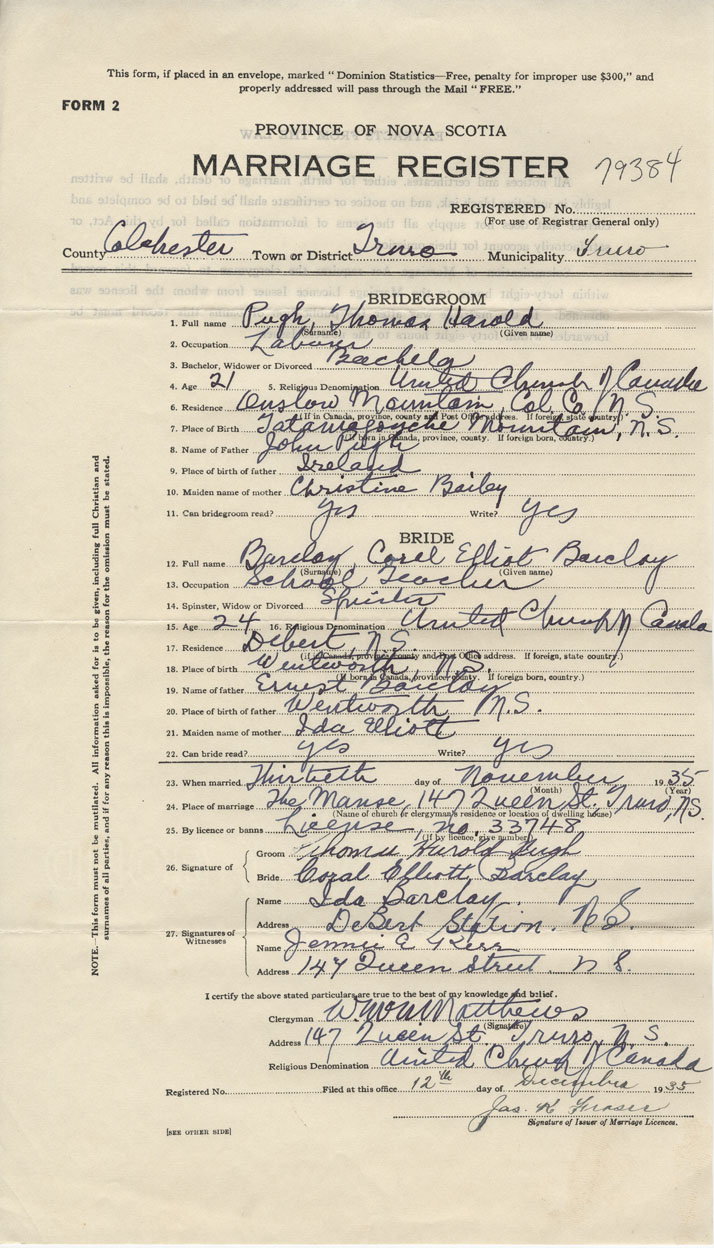 This form, if placed in an envelope, marked "Dominion Statistics—Free, penalty for improper use $300," and
properly addressed will pass through the Mail "FREE."
FORM 2
PROVINCE OF NOVA SCOTIA
MARRIAGE REGISTER 79384
REGISTERED No.
(For use of Registrar General only)
County Colchester Town or District Truro Municipality Truro
BRIDEGROOM
1. Full name Pugh, Thomas Harold
(Surname) (Given name)
2. Occupation Labour
3. Bachelor, Widower or Divorced Bachelor
4. Age 21 5. Religious Denomination United Church of Canada
6. Residence Onslow Mountain, Col. Co. N.S.
(If in Canada, province, county and Post Office address. If foreign, state country.)
7. Place of Birth Tatamagouche Mountain, N.S.
(If born in Canada, province, county. If foreign born, country.)
8. Name of Father John Pugh
9. Place of birth of father Ireland
10. Maiden name of mother Christine Bailey
11. Can bridegroom read? yes Write? yes
BRIDE
12. Full name Barclay, Corel Elliot Barclay
(Surname) (Given name)
13. Occupation School Teacher
14. Spinster, Widow or Divorced Spinster
15. Age 24 16. Religious Denomination United Church of Canada
17. Residence Debert, N.S.
(if in Canada, province county and Post Office address. If foreign, state country.)
18. Place of birth Wentworth, N.S.
(If born in Canada, province, county. If foreign born, country.)
19. Name of father Ernest Barclay
20. Place of birth of father Wentworth N.S.
21. Maiden name of mother Ida Elliott
22. Can bride read? yes Write? yes
23. When married Thirtieth day of November 1935
(Month) (Year)
24. Place of marriage The Manse, 147 Queen St. Truro, N.S.
(Name of church or clergyman's residence or location of dwelling house)
25. By licence or banns License, no. 33748
(If by licence, give number)
26. Signature of
Groom Thomas Harold Pugh
Bride Coral Elliott Barclay
27. Signatures of Witnesses
Name Ida Barclay.
Address DeBert Station. N.S.
Name Jennie E Kerr
Address 147 Queen Street. N S.
I certify the above stated particulars are true to the best of my knowledge and belief.
Clergyman Matthews
(Signature)
Address 147 Queen St. Truro, N.S.
Religious Denomination United Church of Canada
Registered No. Filed at this office 12th day of December 1935
Jas. K Fraser
Signature of Issuer of Marriage Licences.
[SEE OTHER SIDE]
NOTE.—This form must not be mutilated. All information asked for is to be given, including full Christian and
surnames of all parties, and if for any reason this is impossible, the reason for the omission must be stated.